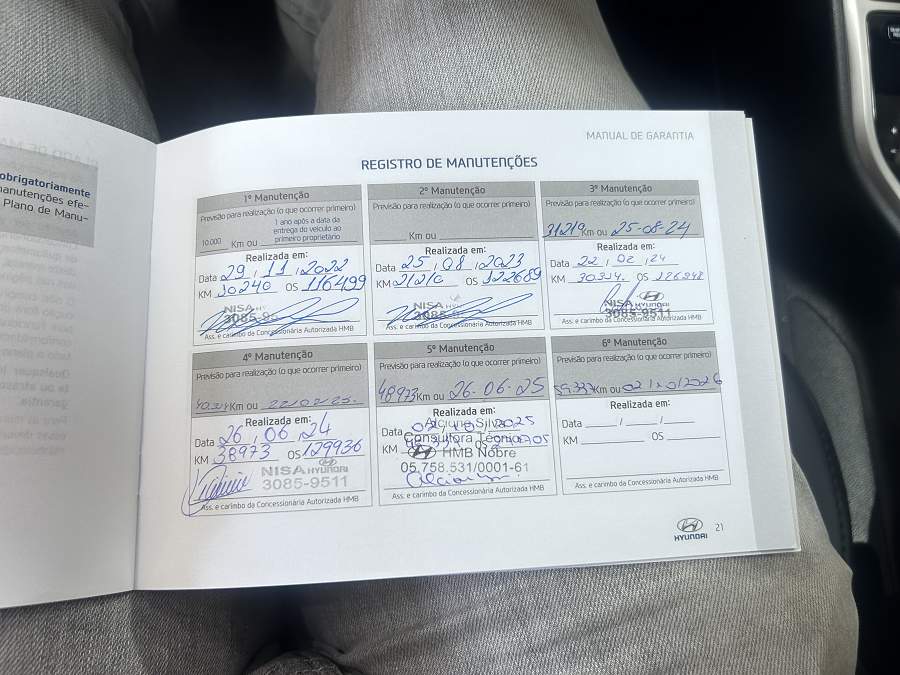 MANUAL DE GARANTIA
REGISTRO DE MANUTENÇÕES
obrigatoriamente
manutenções efe-
Plano de Manu-
1º Manutenção
Previsão para realização (o que ocorrer primeiro)
10.000 Km ou 1 ano após a data da entrega do veículo ao primeiro proprietário
Realizada em:
Data 29 / 11 / 2022
KM 10240 OS 116499
NISA HY
3085-95
Ass. e carimbo da Concessionária Autorizada HMB
2º Manutenção
Previsão para realização (o que ocorrer primeiro)
Km ou
Realizada em:
Data 25 / 08 / 2023
KM 21210 OS 122689
NISA
3085-9
Ass. e carimbo da Concessionária Autorizada HMB
3º Manutenção
Previsão para realização (o que ocorrer primeiro)
31219 Km ou 25-08-24
Realizada em:
Data 22 / 02 / 24
KM 30314 OS
NISA HYUNDAI
3085-9511
Ass. e carimbo da Concessionária Autorizada HMB
4º Manutenção
Previsão para realização (o que ocorrer primeiro)
40.314 Km ou 22/02/25.
Realizada em:
Data 26 / 06 / 24
KM 38973 OS 129936
NISA HYUNDAI
3085-9511
Ass. e carimbo da Concessionária Autorizada HMB
5º Manutenção
Previsão para realização (o que ocorrer primeiro)
48973 Km ou 26-06-25
Realizada em:
Data 2025
Alciune Silva
Consultora Técnica
KM OS
HMB Nobre
05.758.531/0001-61
Ass. e carimbo da Concessionária Autorizada HMB
6º Manutenção
Previsão para realização (o que ocorrer primeiro)
Km ou 2026
Realizada em:
Data / /
KM OS
Ass. e carimbo da Concessionária Autorizada HMB
HYUNDAI
21